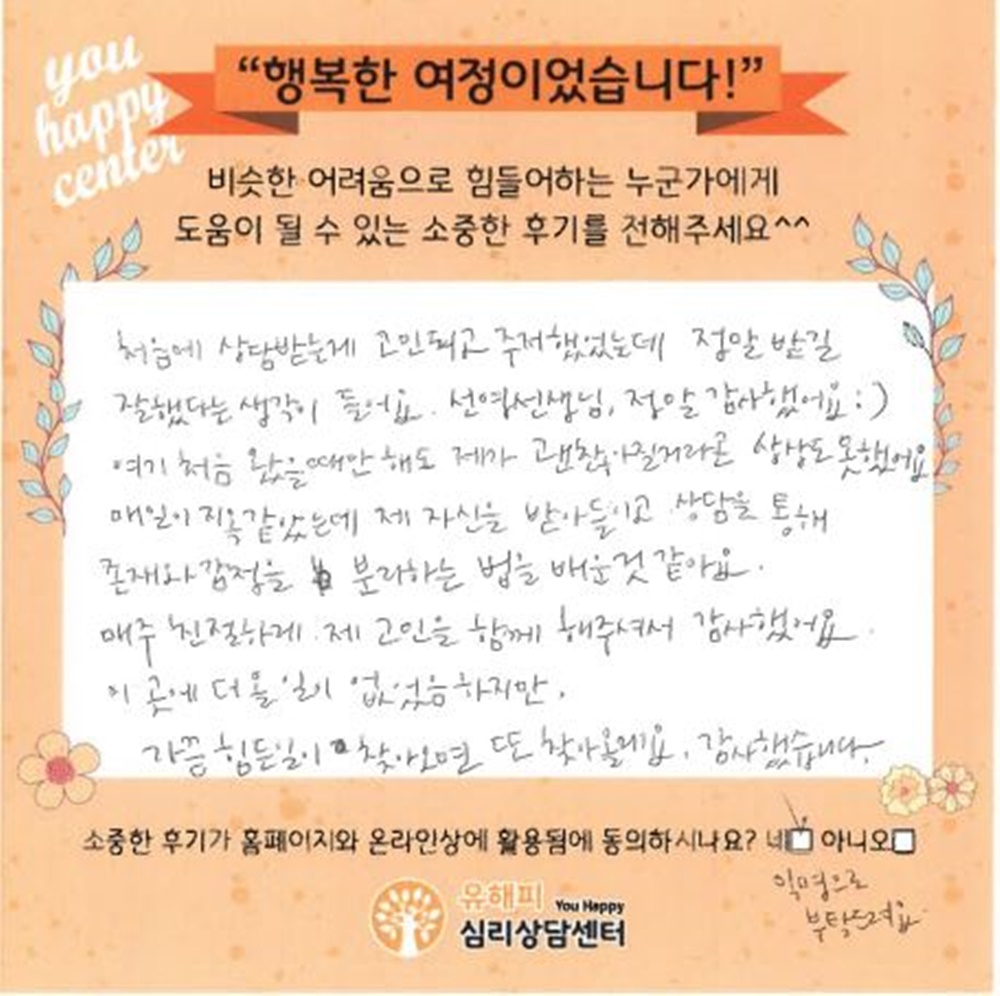 you
happy
center
“행복한 여정이었습니다!”
비슷한 어려움으로 힘들어하는 누군가에게
도움이 될 수 있는 소중한 후기를 전해주세요^^
처음에 상담받는게 고민되고 주저했었는데 정말 받길
잘했다는 생각이 들어요. 선영선생님, 정말 감사했어요:)
여기 처음 왔을때만 해도 제가 괜찮아질거라곤 상상도 못했어요
매일이 지옥같았는데 제 자신을 받아들이고 상담을 통해
존재와 감정을 분리하는 법을 배운것 같아요.
매주 친절하게 제 고민을 함께 해주셔서 감사했어요.
이 곳에 더 올 일이 없었음 하지만,
가끔 힘든일이 찾아오면 또 찾아올게요. 감사했습니다.
소중한 후기가 홈페이지와 온라인상에 활용됨에 동의하시나요? 네 아니오
익명으로
부탁드려요
유해피 You Happy
심리상담센터